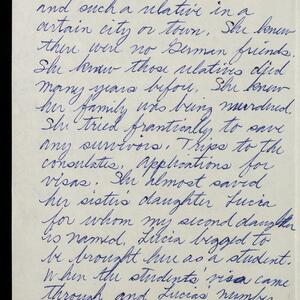 and such a relative in a
certain city or town. She knew
there were no German friends.
She knew those relatives died
many years before. She knew
her family was being murdered.
She tried frantically to save
any survivors. Trips to the
consulates. Applications for
visas. She almost saved
her sister's daughter Lucia
for whom my second daughter
is named. Lucia begged to
be brought here as a student.
When the students' visa came
through and Lucia's number